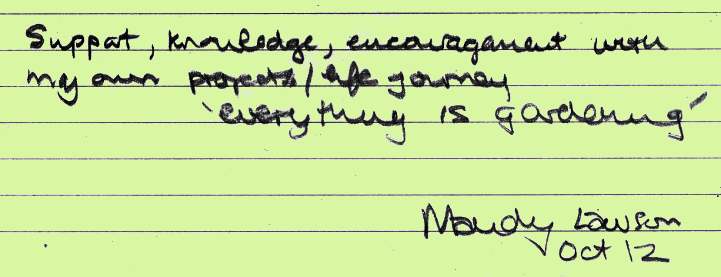 Support, knowledge, encouragement with
my own projects/life journey
'everything is gardening'
Mandy Lawson
Oct 12